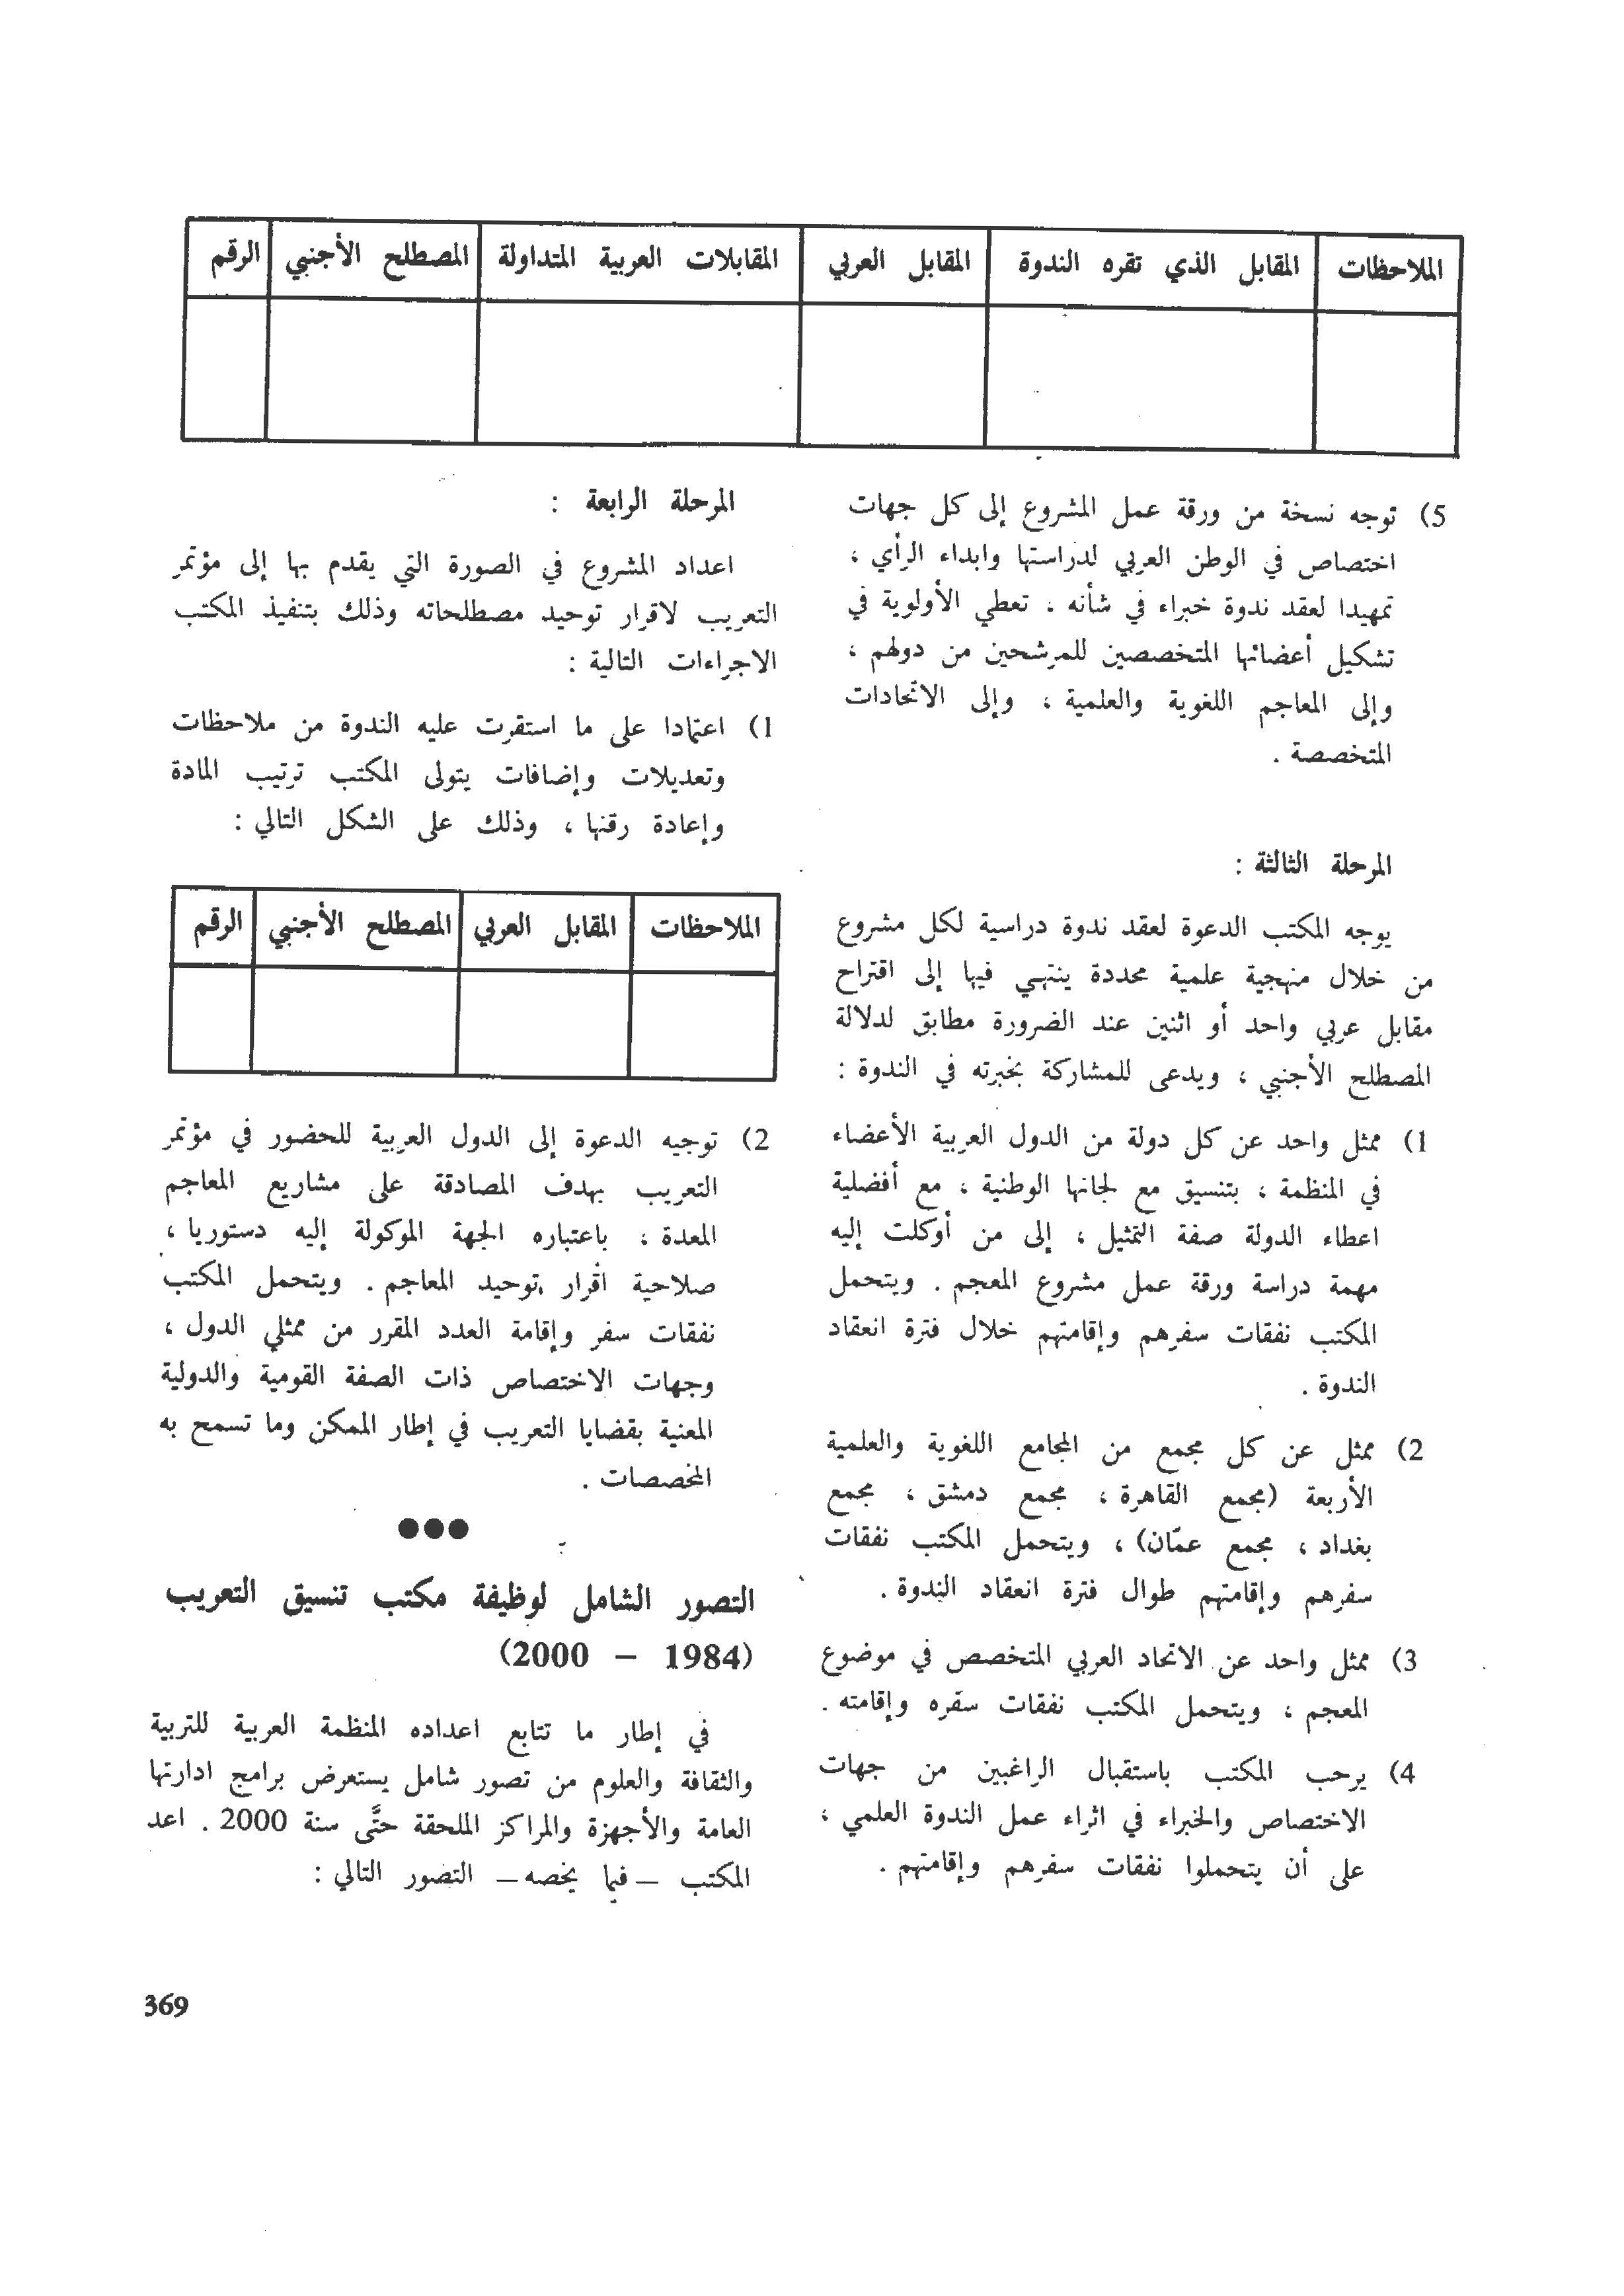 الملاحظات المقابل الذي تقره الندوة المقابل العربي المقابلات العربية المتداولة المصطلح الأجنبي الرقم
5) توجه نسخة من ورقة عمل المشروع إلى كل جهات
اختصاص في الوطن العربي لدراستها وابداء الرأي ،
تمهيدا لعقد ندوة خبراء في شأنه ، تعطي الأولوية في
تشكيل أعضائها المتخصصين للمرشحين من دولهم ،
وإلى المعاجم اللغوية والعلمية ، وإلى الاتحادات
المتخصصة .
المرحلة الثالثة :
يوجه المكتب الدعوة لعقد ندوة دراسية لكل مشروع
من خلال منهجية علمية محددة ينتهي فيها إلى اقتراح
مقابل عربي واحد أو اثنين عند الضرورة مطابق لدلالة
المصطلح الأجنبي ، ويدعى للمشاركة بخبرته في الندوة :
1) ممثل واحد عن كل دولة من الدول العربية الأعضاء
في المنظمة ، بتنسيق مع لجانها الوطنية ، مع أفضلية
اعطاء الدولة صفة التمثيل ، إلى من أوكلت إليه
مهمة دراسة ورقة عمل مشروع المعجم . ويتحمل
المكتب نفقات سفرهم وإقامتهم خلال فترة انعقاد
الندوة .
2) ممثل عن كل مجمع من المجامع اللغوية والعلمية
الأربعة (مجمع القاهرة ، مجمع دمشق ، مجمع
بغداد ، مجمع عمّان) ، ويتحمل المكتب نفقات
سفرهم وإقامتهم طوال فترة انعقاد الندوة .
3) ممثل واحد عن الاتحاد العربي المتخصص في موضوع
المعجم ، ويتحمل المكتب نفقات سفره وإقامته .
4) يرحب المكتب باستقبال الراغبين من جهات
الاختصاص والخبراء في اثراء عمل الندوة العلمي ،
على أن يتحملوا نفقات سفرهم وإقامتهم .
المرحلة الرابعة :
اعداد المشروع في الصورة التي يقدم بها إلى مؤتمر
التعريب لاقرار توحيد مصطلحاته وذلك بتنفيذ المكتب
الاجراءات التالية :
1) اعتمادا على ما استقرت عليه الندوة من ملاحظات
وتعديلات وإضافات يتولى المكتب ترتيب المادة
وإعادة رقنها ، وذلك على الشكل التالي :
الملاحظات المقابل العربي المصطلح الأجنبي الرقم
2) توجيه الدعوة إلى الدول العربية للحضور في مؤتمر
التعريب بهدف المصادقة على مشاريع المعاجم
المعدة ، باعتباره الجهة الموكولة إليه دستوريا ،
صلاحية اقرار توحيد المعاجم . ويتحمل المكتب
نفقات سفر وإقامة العدد المقرر من ممثلي الدول ،
وجهات الاختصاص ذات الصفة القومية والدولية
المعنية بقضايا التعريب في إطار الممكن وما تسمح به
المخصصات .
●●●
التصور الشامل لوظيفة مكتب تنسيق التعريب
(1984 – 2000)
في إطار ما تتابع اعداده المنظمة العربية للتربية
والثقافة والعلوم من تصور شامل يستعرض برامج ادارتها
العامة والأجهزة والمراكز الملحقة حتَّى سنة 2000 . اعد
المكتب – فيما يخصه – التصور التالي :
369